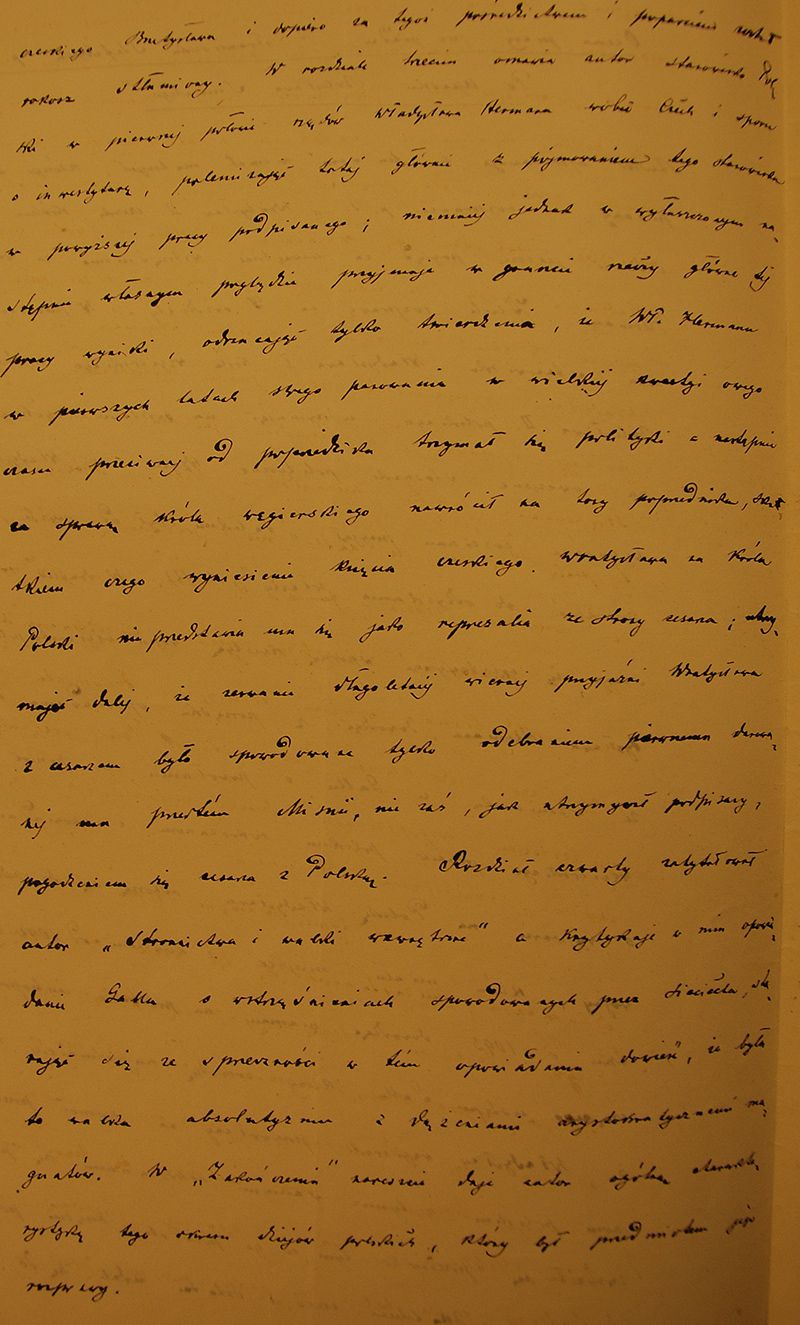 czeskiego Brzetysława i dopiero za tegoż pośrednictwem i poparciem został
rokosz stłumiony. W rozdziale trzecim omawia autor stanowisko Pol
ski w pierwszej połowie rządów Władysława Hermana wobec Czech i sporu
o inwestyturę, polemizując tutaj głównie z pojmowaniem tego stanowiska
w powyższej pracy podpisanego; niemniej jednak w wyłuszczonym na-
stępnie własnym poglądzie przyjmuje w gruncie rzeczy główne tej
pracy wyniki, odrzucając tylko twierdzenia, że Wł. Herman
w pierwszych latach swego panowania w wielkiej kwestyi owego
czasu przeciwnej od poprzednika trzymał się polityki a następnie
za sprawą króla węgierskiego nawrócił na tory poprzednika, sku
tkiem czego wyniesienie księcia czeskiego Wratysława na króla
Polski nie przedstawia mu się jako represalia ze strony cesarza; utrzy-
mując dalej, że zerwanie długoletniej wiernej przyjaźni Wratysława
z cesarzem było spowodowane tylko odebraniem pierwszemu darowa-
nej mu przedtém Misnii, nie zaś, jak utrzymywał podpisany,
pogodzeniem się cesarza z Polską. Rozdział czwarty zatytułował
autor „Stronnictwa i walki wewnętrzne" a krytykuje w nim opowia-
danie Galla o wstrząśnieniach spowodowanych przez Sieciecha, sta-
rając się ze sprzeczności w tém opowiadaniu dowieść, że była
to walka absolutyzmu z dążeniami arystokratycznemi ma-
gnatów. W „Zakończeniu" nareszcie daje autor ogólną charakte-
rystykę tego okresu dziejów polskich, który był przedmiotem jego
rozprawy.